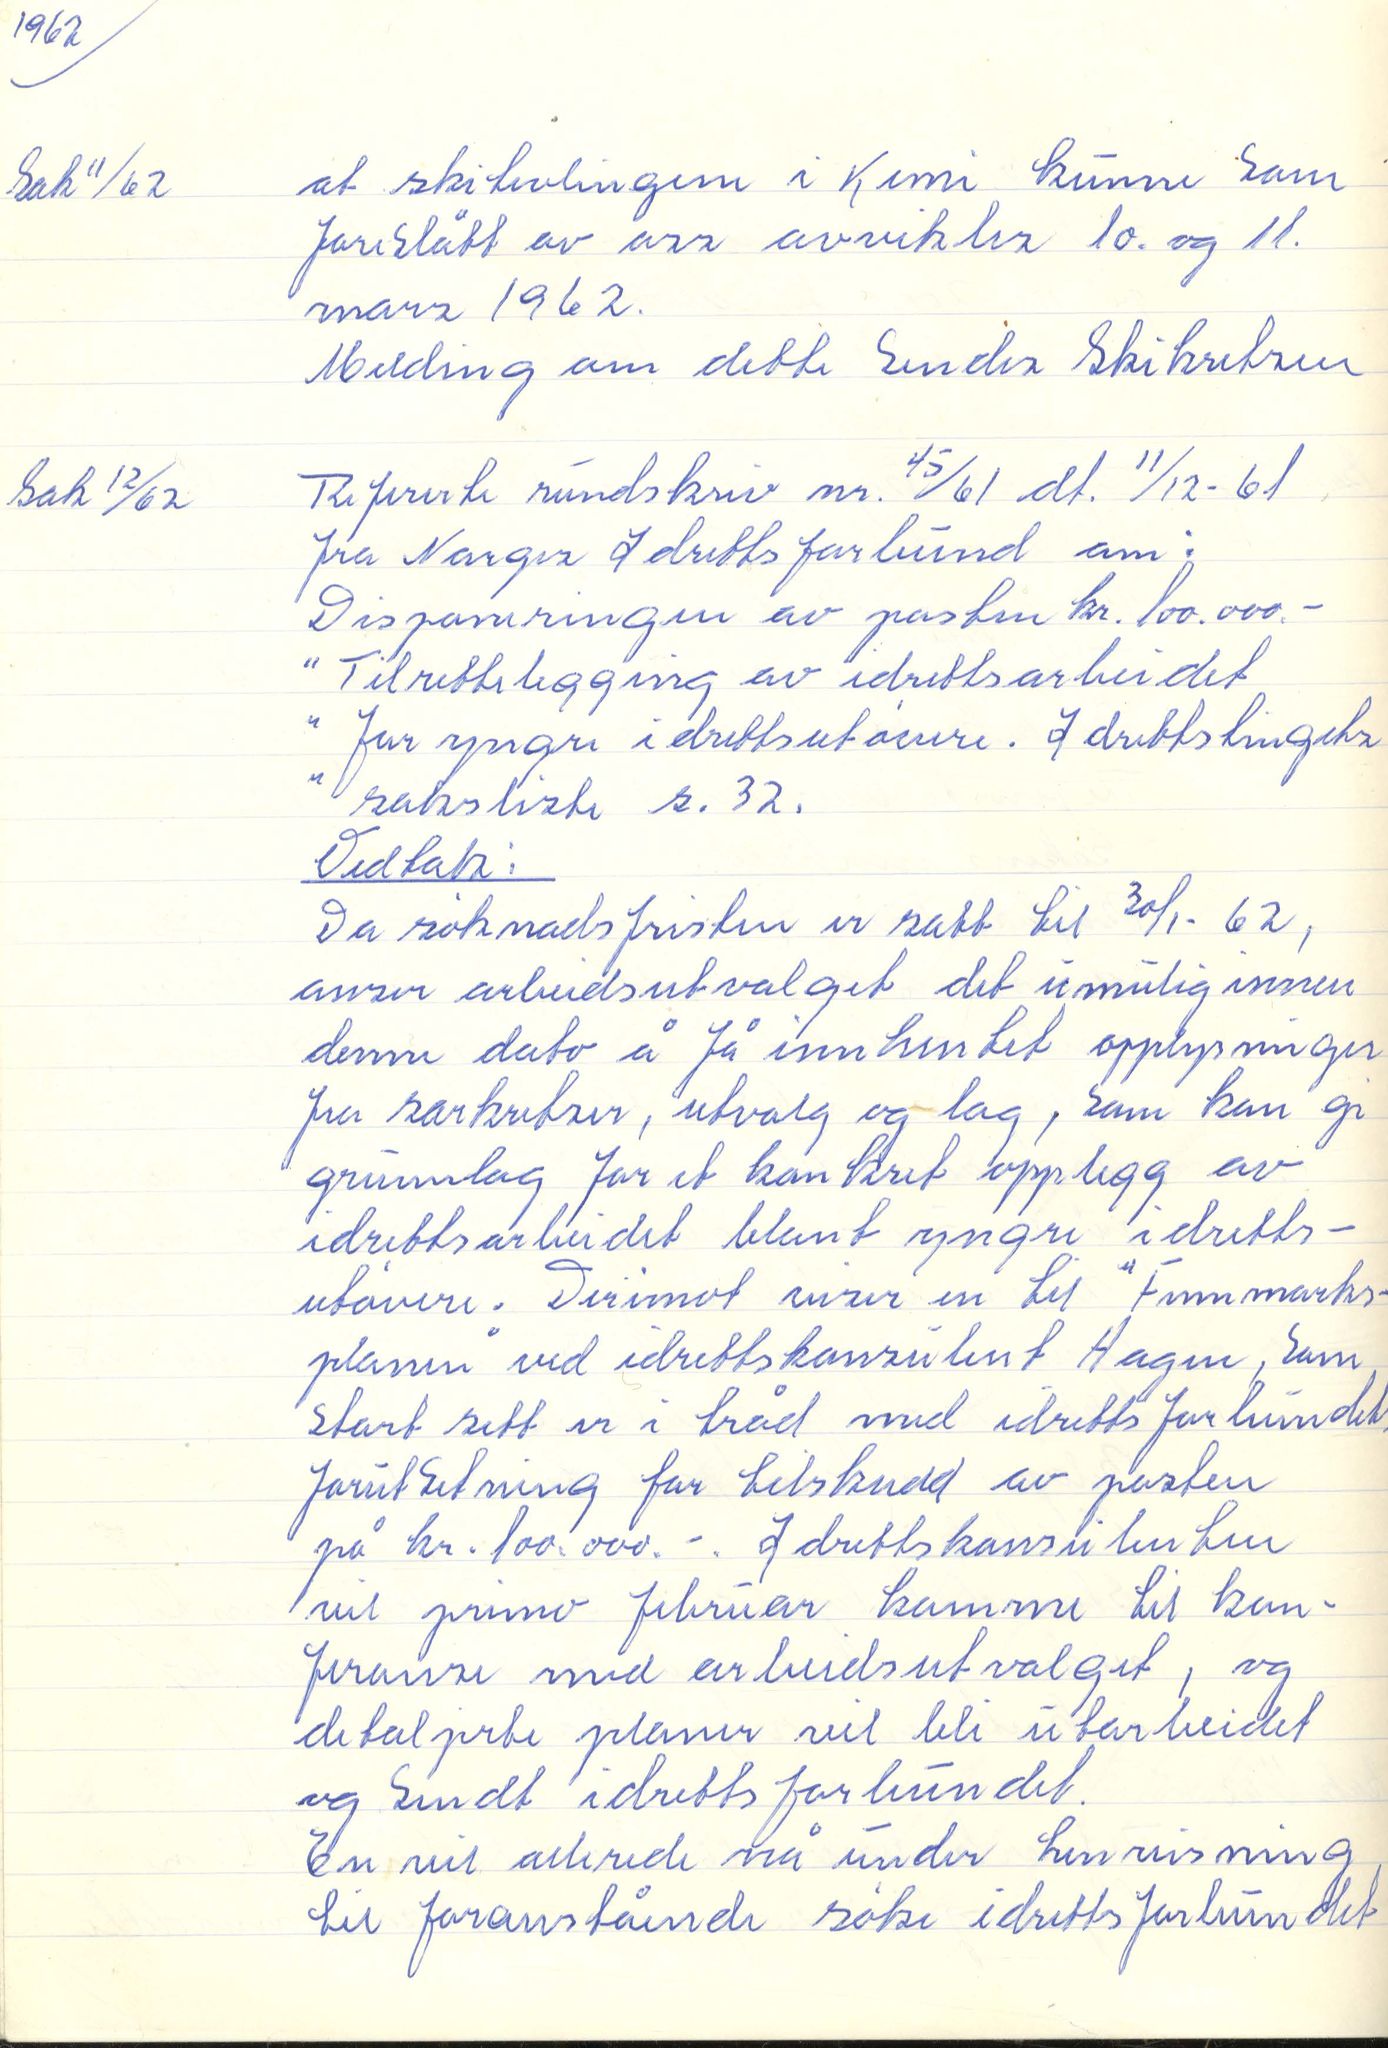 1962
Sak 11/62 at skitevlingene i Kemi kunne som
foreslått av oss avvikles 10. og 11.
mars 1962.
Melding om dette sendes Skikretsen
Sak 12/62 Refererte rundskriv nr. 45/61 dt. 11/12-61
fra Norges Idrettsforbund om:
Disponeringen av posten kr. 100.000.-
" Tilrettelegging av idrettsarbeidet
" for yngre idrettsutövere. Idrettstingets
" saksliste s. 32.
Vedtak:
Da söknadsfristen er satt til 20/1-62,
anser arbeidsutvalget det umulig innen
denne dato å få innhentet opplysninger
fra særkretser, utvalg og lag, som kan gi
grunnlag for et konkret opplegg av
idrettsarbeidet blant yngre idretts-
utövere. Derimot viser en til "Finnmarks-
planen" ved idrettskonsulent Hagen, som
stort sett er i tråd med idrettsforbundets
forutsetning for tilskudd av posten
på kr. 100.000.-. Idrettskonsulenten
vil primo februar komme til kon-
feranse med arbeidsutvalget, og
detaljerte planer vil bli utarbeidet
og sendt idrettsforbundet.
En vil allerede nå under henvisning
til foranstående söke idrettsforbundet